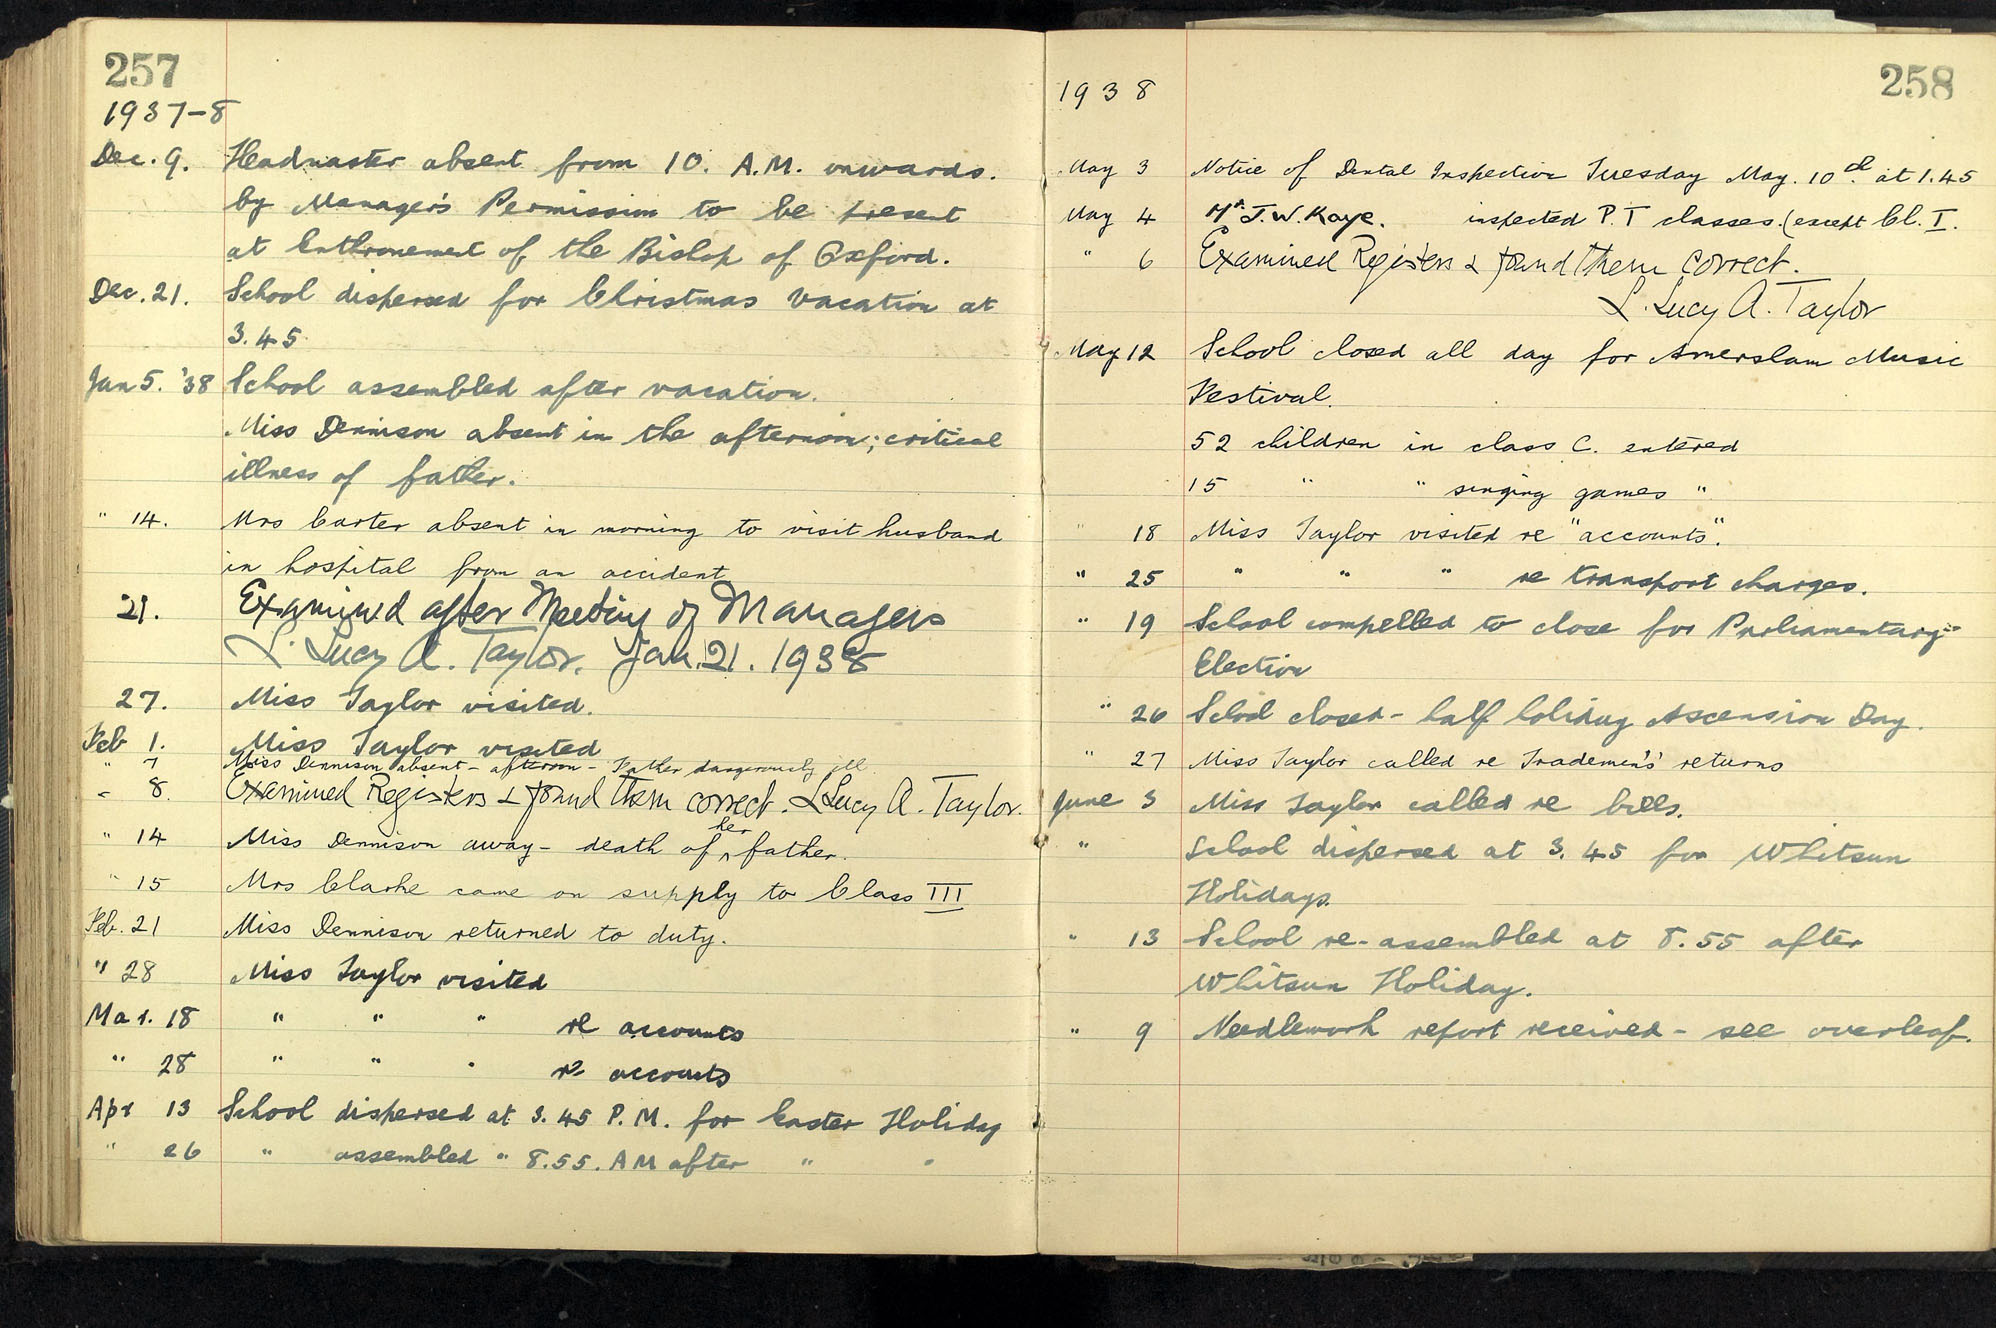 257
1937-8
Dec. 9. Headmaster absent from 10. A.M. onwards.
by Manager's Permission to be present
at Enthronement of the Bishop of Oxford.
Dec. 21. School dispersed for Christmas Vacation at
3.45
Jan 5. '38 School assembled after vacation.
Miss Dennison absent in the afternoon; critical
illness of father.
" 14. Mrs Carter absent in morning to visit husband
in hospital from an accident
21. Examined after Meeting of Managers
L. Lucy A. Taylor. Jan. 21. 1938
27. Miss Taylor visited.
Feb 1. Miss Taylor visited
" 7 Miss Dennison absent - afternoon - Father dangerously ill
" 8. Examined Registers & found them correct. L Lucy A. Taylor.
her
" 14 Miss Dennison away - death of ^ father.
" 15 Mrs Clarke came on supply to Class III
Feb. 21 Miss Dennison returned to duty.
" 28 Miss Taylor visited
Mar. 18 " " " re accounts
" 28 " " " re accounts
Apr 13 School dispersed at 3.45 P.M. for Easter Holiday
" 26 " assembled " 8.55. AM after " "
258
1938
May 3 Notice of Dental Inspection Tuesday May. 10th. at 1.45
May 4 Mr. J. W. Kaye. inspected P.T classes. (except Cl. I.
" 6 Examined Registers & found them correct.
L. Lucy A. Taylor
May 12 School closed all day for Amersham Music
Festival.
52 children in class C. entered
15 " " singing games "
" 18 Miss Taylor visited re "accounts".
" 25 " " " re transport charges.
" 19 School compelled to close for Parliamentary
Election
" 26 School closed - half holiday Ascension Day.
" 27 Miss Taylor called re Trademen's' returns
June 3 Miss Taylor called re bills.
" School dispersed at 3.45 for Whitsun
Holidays.
" 13 School re-assembled at 8.55 after
Whitsun Holiday.
" 9 Needlework report received - see overleaf.